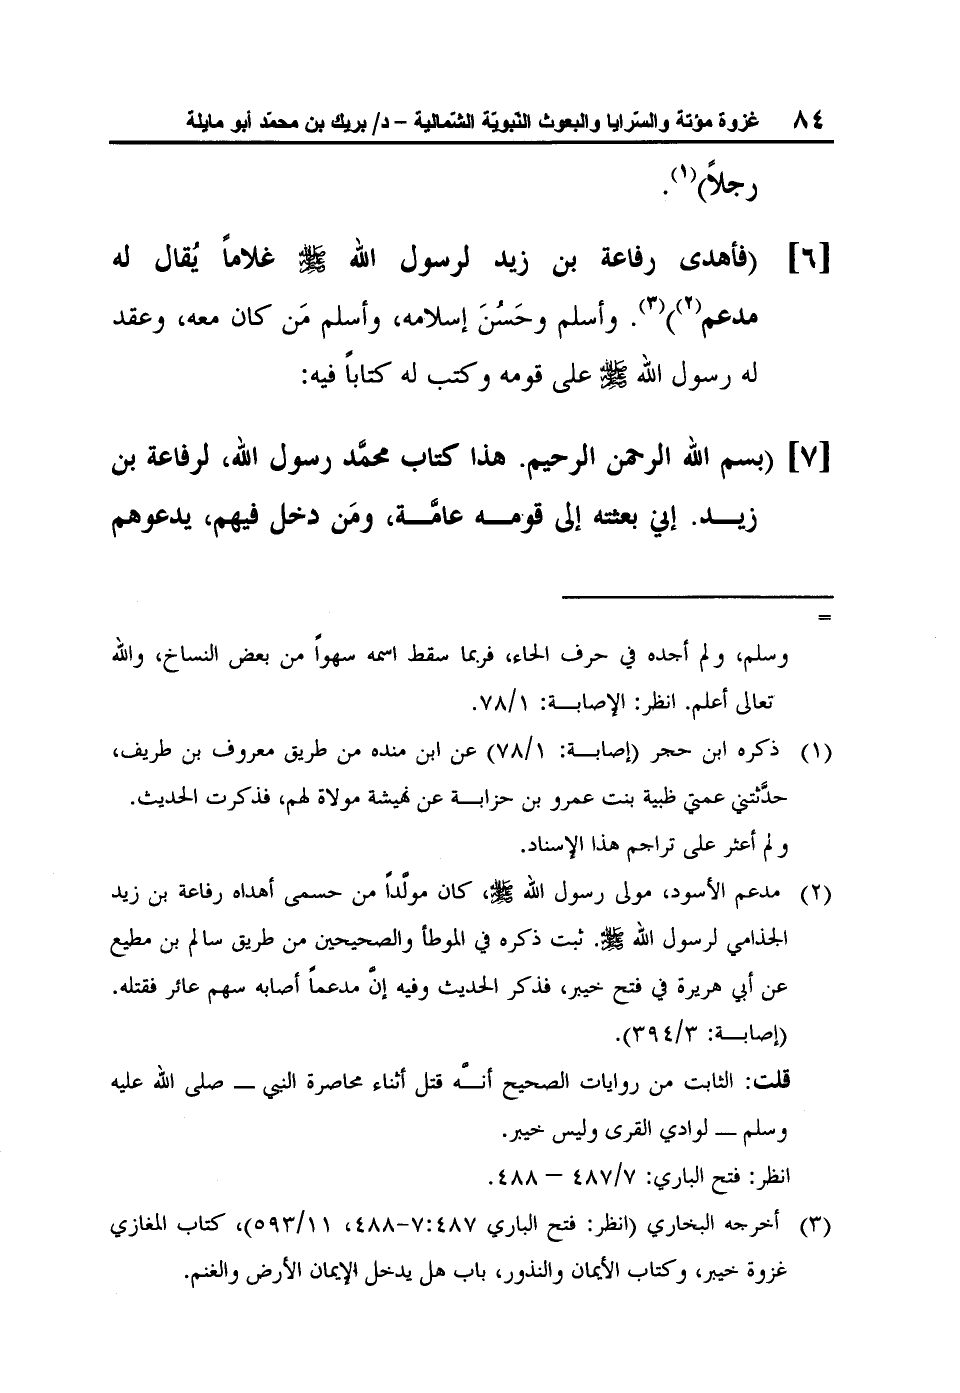 ٨٤ غزوة مؤتة والسّرايا والبعوث النّبويّة الشّمالية – د/ بريك بن محمّد أبو مايلة
رجلاً)(١).
[٦] (فأهدى رفاعة بن زيد لرسول الله ﷺ غلاماً يُقال له
مدعم(٢))(٣). وأسلم وحَسُنَ إسلامه، وأسلم مَن كان معه، وعقد
له رسول الله ﷺ على قومه وكتب له كتاباً فيه:
[٧] (بسم الله الرحمن الرحيم. هذا كتاب محمَّد رسول الله، لرفاعة بن
زيـــد. إني بعثته إلى قومـــه عامَّـــة، ومَن دخل فيهم، يدعوهم
=
وسلم، ولم أجده في حرف الحاء، فربما سقط اسمه سهواً من بعض النساخ، والله
تعالى أعلم. انظر: الإصابـــة: ٧٨/١.
(١) ذكره ابن حجر (إصابـــة: ٧٨/١) عن ابن منده من طريق معروف بن طريف،
حدَّثتني عمتي ظبية بنت عمرو بن حزابـــة عن نهيشة مولاة لهم، فذكرت الحديث.
ولم أعثر على تراجم هذا الإسناد.
(٢) مدعم الأسود، مولى رسول الله ﷺ، كان مولّداً من حسمى أهداه رفاعة بن زيد
الجذامي لرسول الله ﷺ. ثبت ذكره في الموطأ والصحيحين من طريق سالم بن مطيع
عن أبي هريرة في فتح خيبر، فذكر الحديث وفيه إنَّ مدعماً أصابه سهم عائر فقتله.
(إصابـــة: ٣٩٤/٣).
قلت: الثابت من روايات الصحيح أنـــَّه قتل أثناء محاصرة النبي ـــ صلى الله عليه
وسلم ـــ لوادي القرى وليس خيبر.
انظر: فتح الباري: ٤٨٧/٧ – ٤٨٨.
(٣) أخرجه البخاري (انظر: فتح الباري ٧:٤٨٧-٤٨٨، ٥٩٣/١١)، كتاب المغازي
غزوة خيبر، وكتاب الأيمان والنذور، باب هل يدخل الإيمان الأرض والغنم.